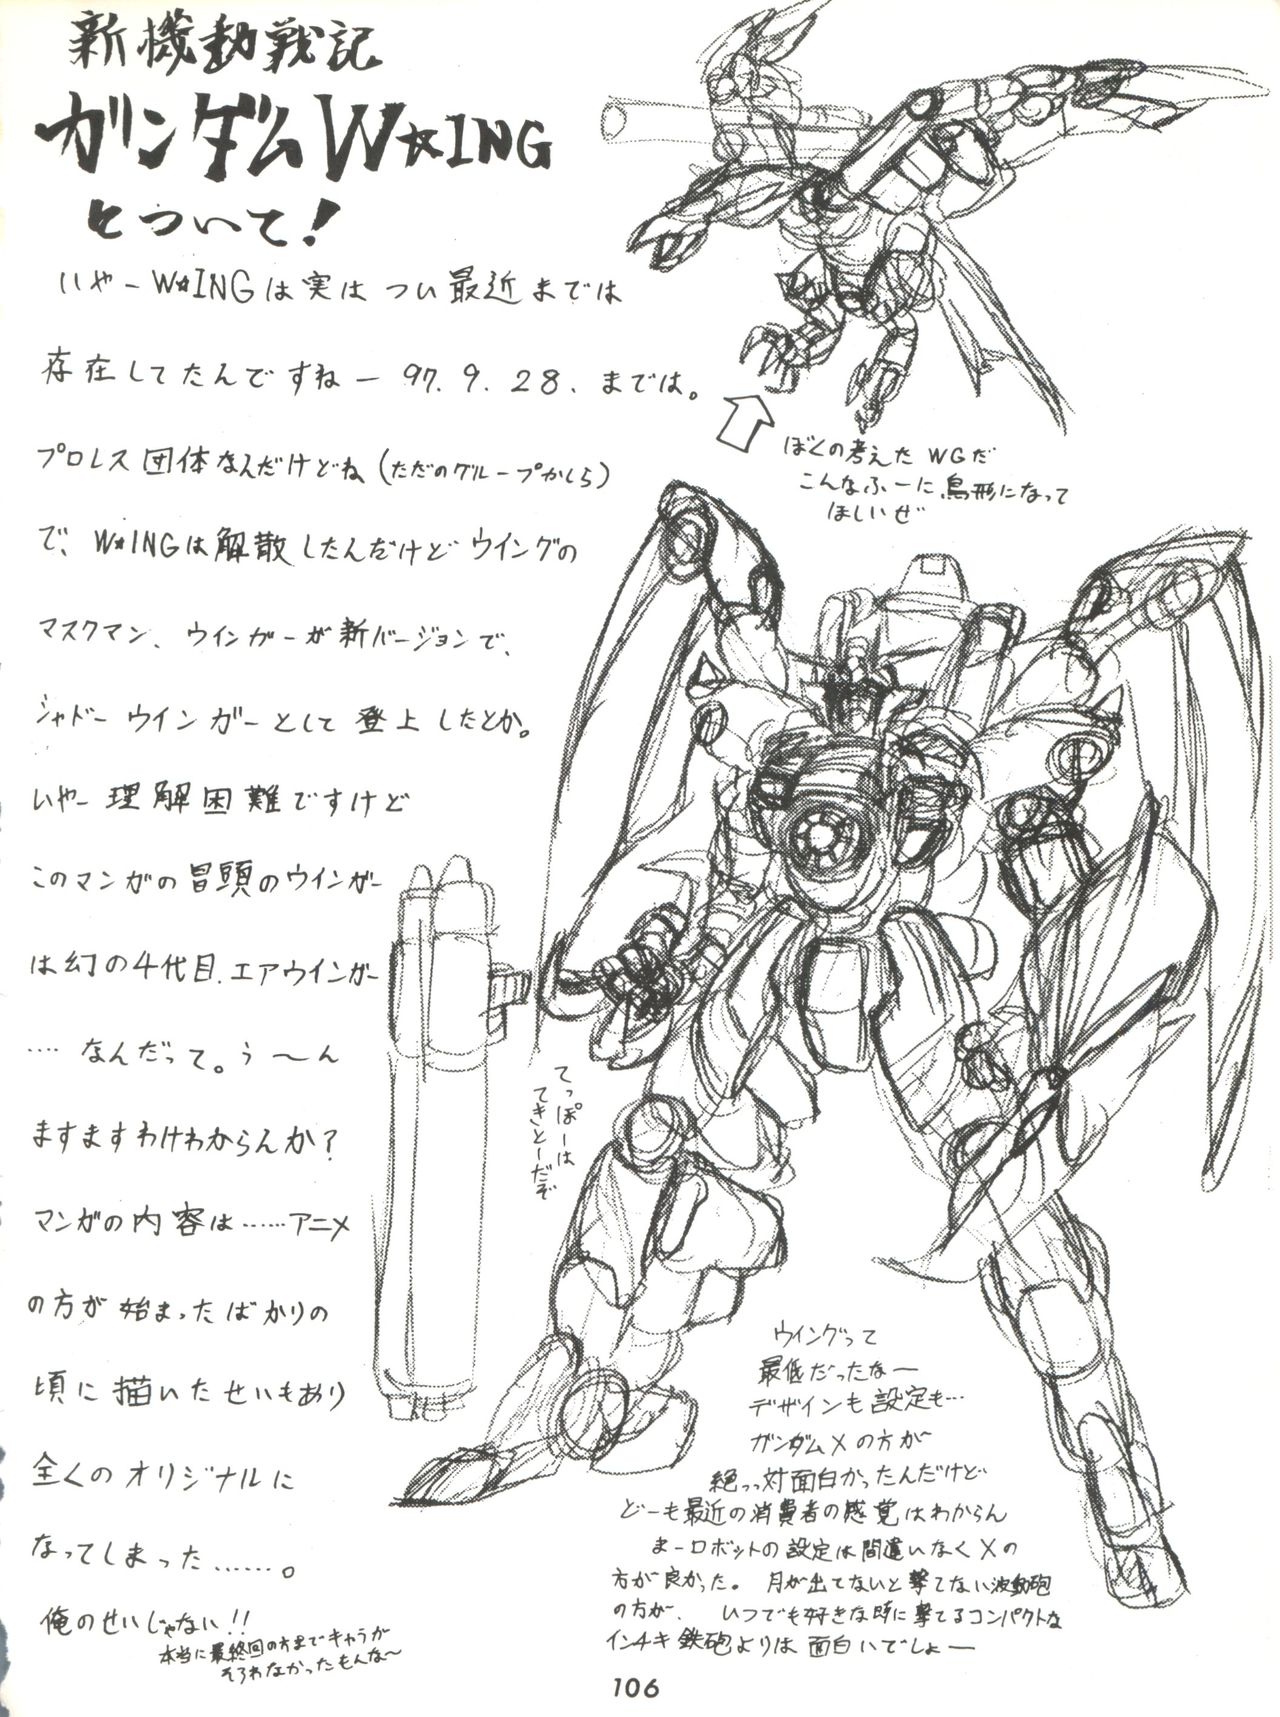 新機動戦記
ガンダムW☆ING
とついて！
いやーW☆INGは実はつい最近までは
存在してたんですねー97.9.28.までは。
プロレス団体なんだけどね(ただのグループかしら)
で、W☆INGは解散したんだけどウイングの
マスクマン、ウインガーが新バージョンで、
シャドーウインガーとして登上したとか。
いやー理解困難ですけど
このマンガの冒頭のウインガー
は幻の4代目、エアウインガー
‥‥なんだって。う〜ん
ますますわけわからんか？
マンガの内容は……アニメ
の方が始まったばかりの
頃に描いたせいもあり
全くのオリジナルに
なってしまった……。
俺のせいじゃない!!
本当に最終回の方までキャラが
そろわなかったもんな〜
ぼくの考えたWGだ
こんなふーに鳥形になって
ほしいぜ
てっぽーは
てきとーだぞ
ウイングって
最低だったなー
デザインも設定も…
ガンダムXの方が
絶っっ対面白かったんだけど
どーも最近の消費者の感覚はわからん
まーロボットの設定は間違いなくXの
方が良かった。月が出てないと撃てない波動砲
の方が、いつでも好きな時に撃てるコンパクトな
インチキ鉄砲よりは面白いでしょー
106